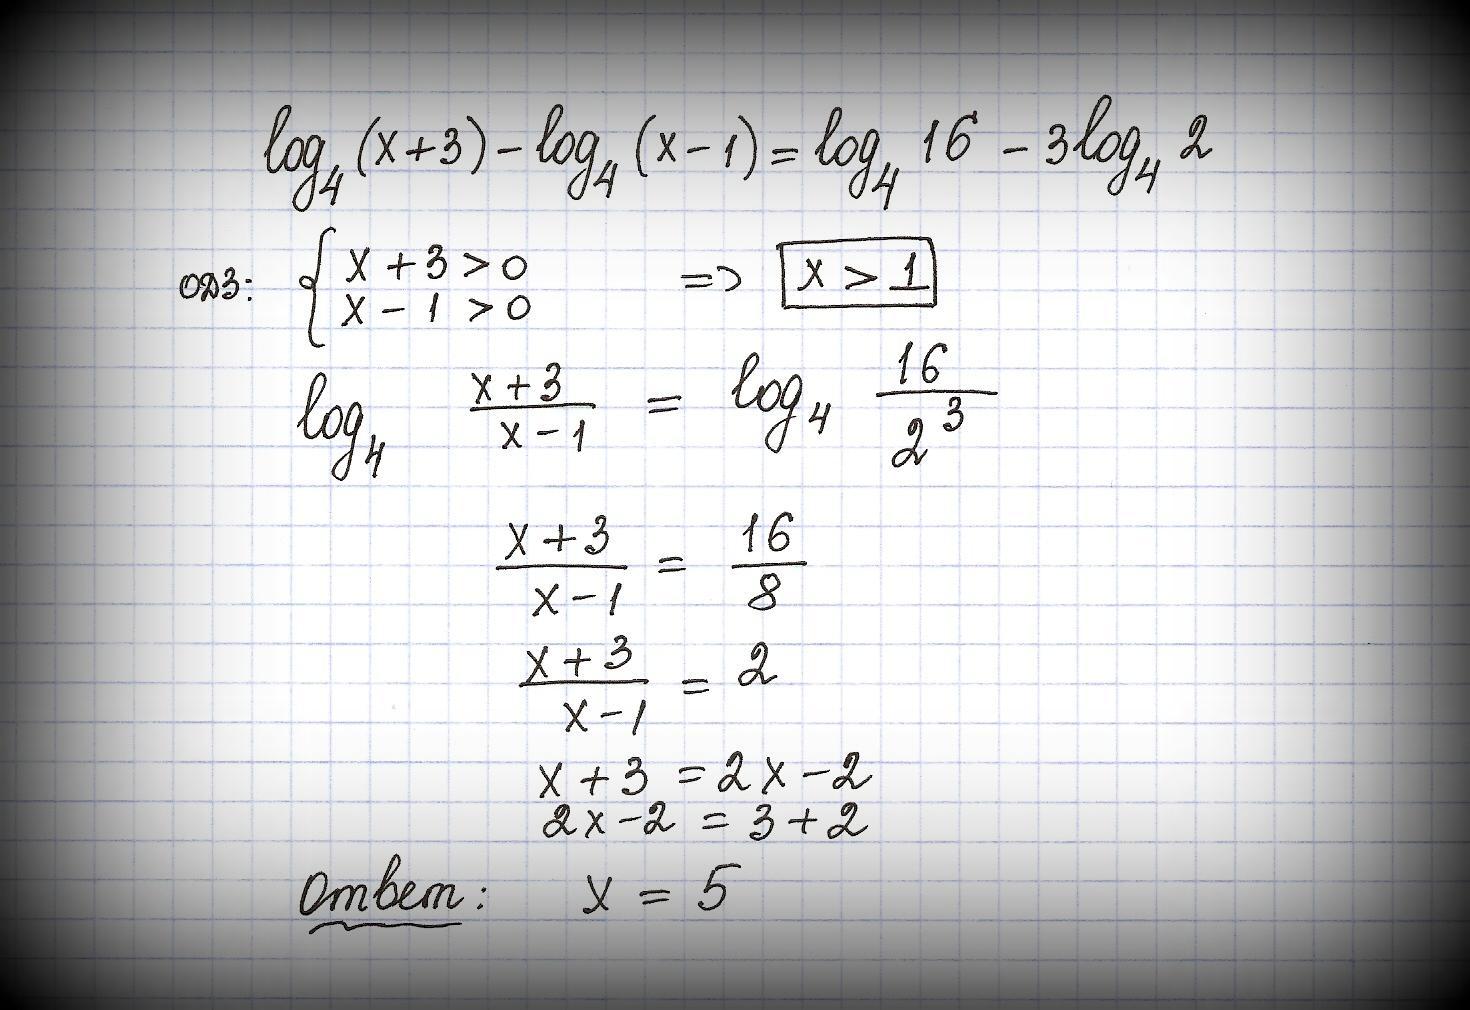 log₄(x+3) - log₄(x-1) = log₄ 16 - 3log₄ 2
ОДЗ: { x + 3 > 0 => x > 1
x - 1 > 0
log₄ (x+3)/(x-1) = log₄ 16/2³
(x+3)/(x-1) = 16/8
(x+3)/(x-1) = 2
x + 3 = 2x - 2
2x - 2 = 3 + 2
Ответ: x = 5